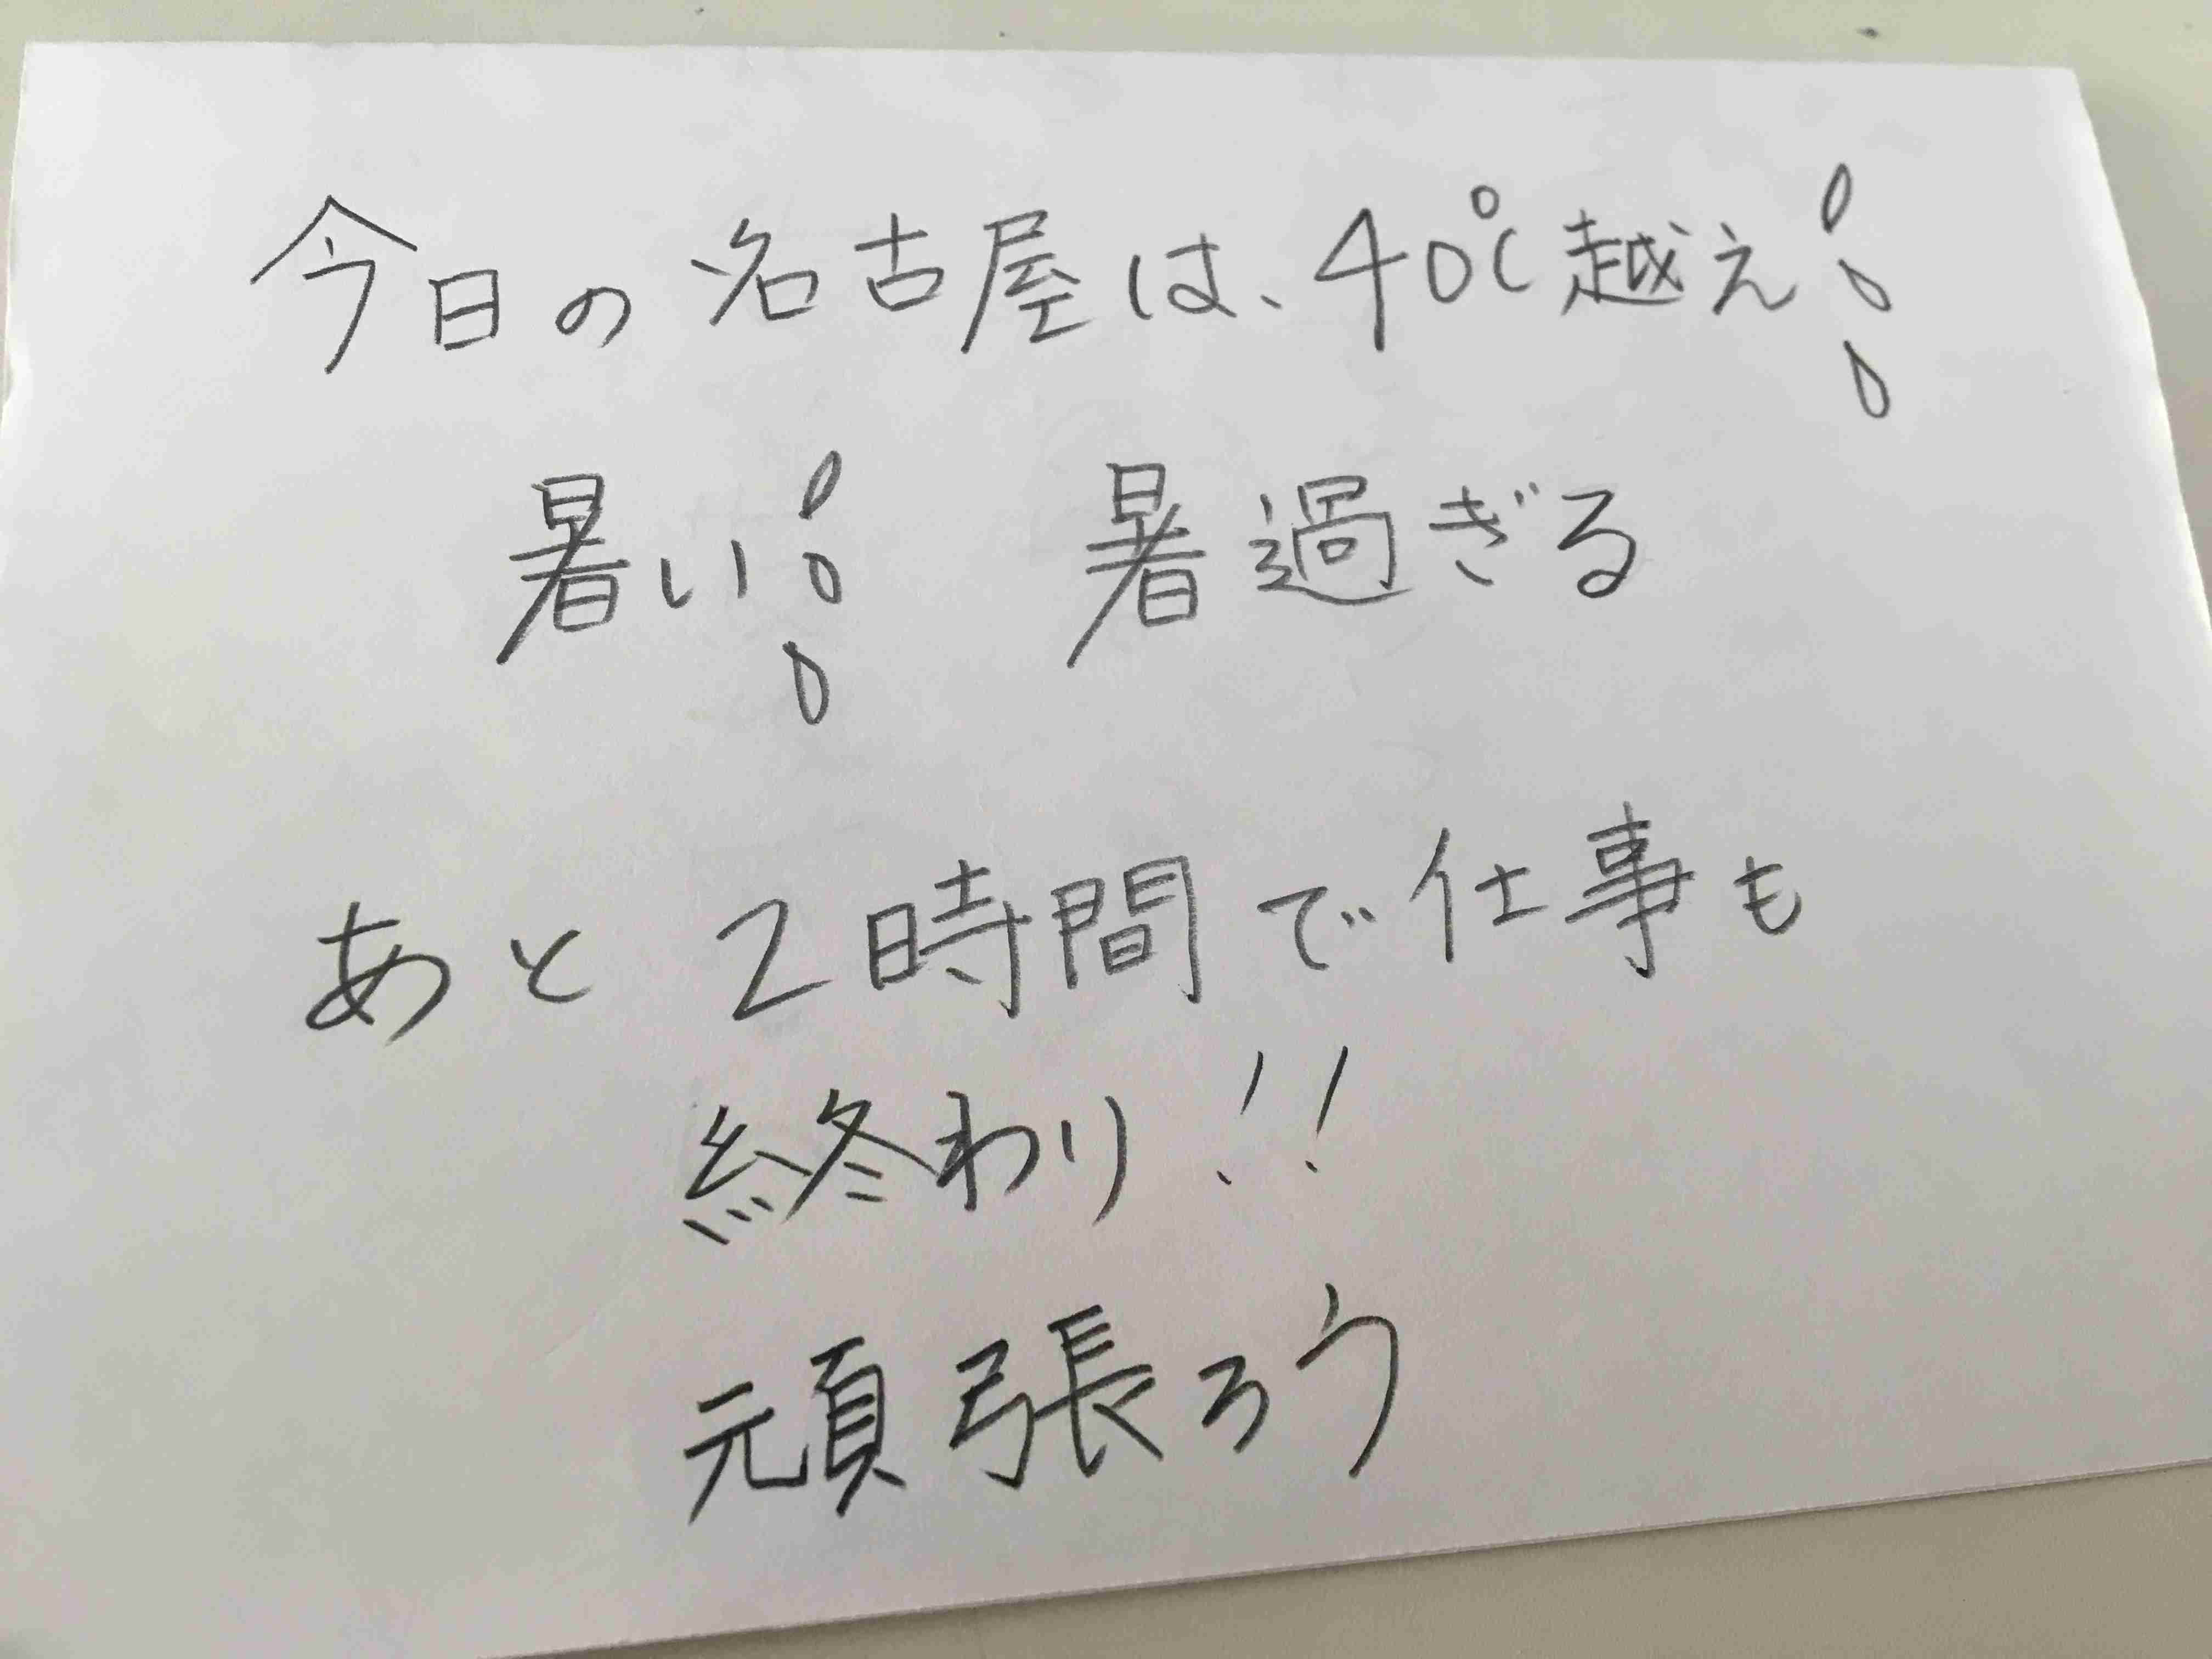 今日の名古屋は、40℃越え
暑い 暑過ぎる
あと2時間で仕事も
終わり!!
頑張ろう